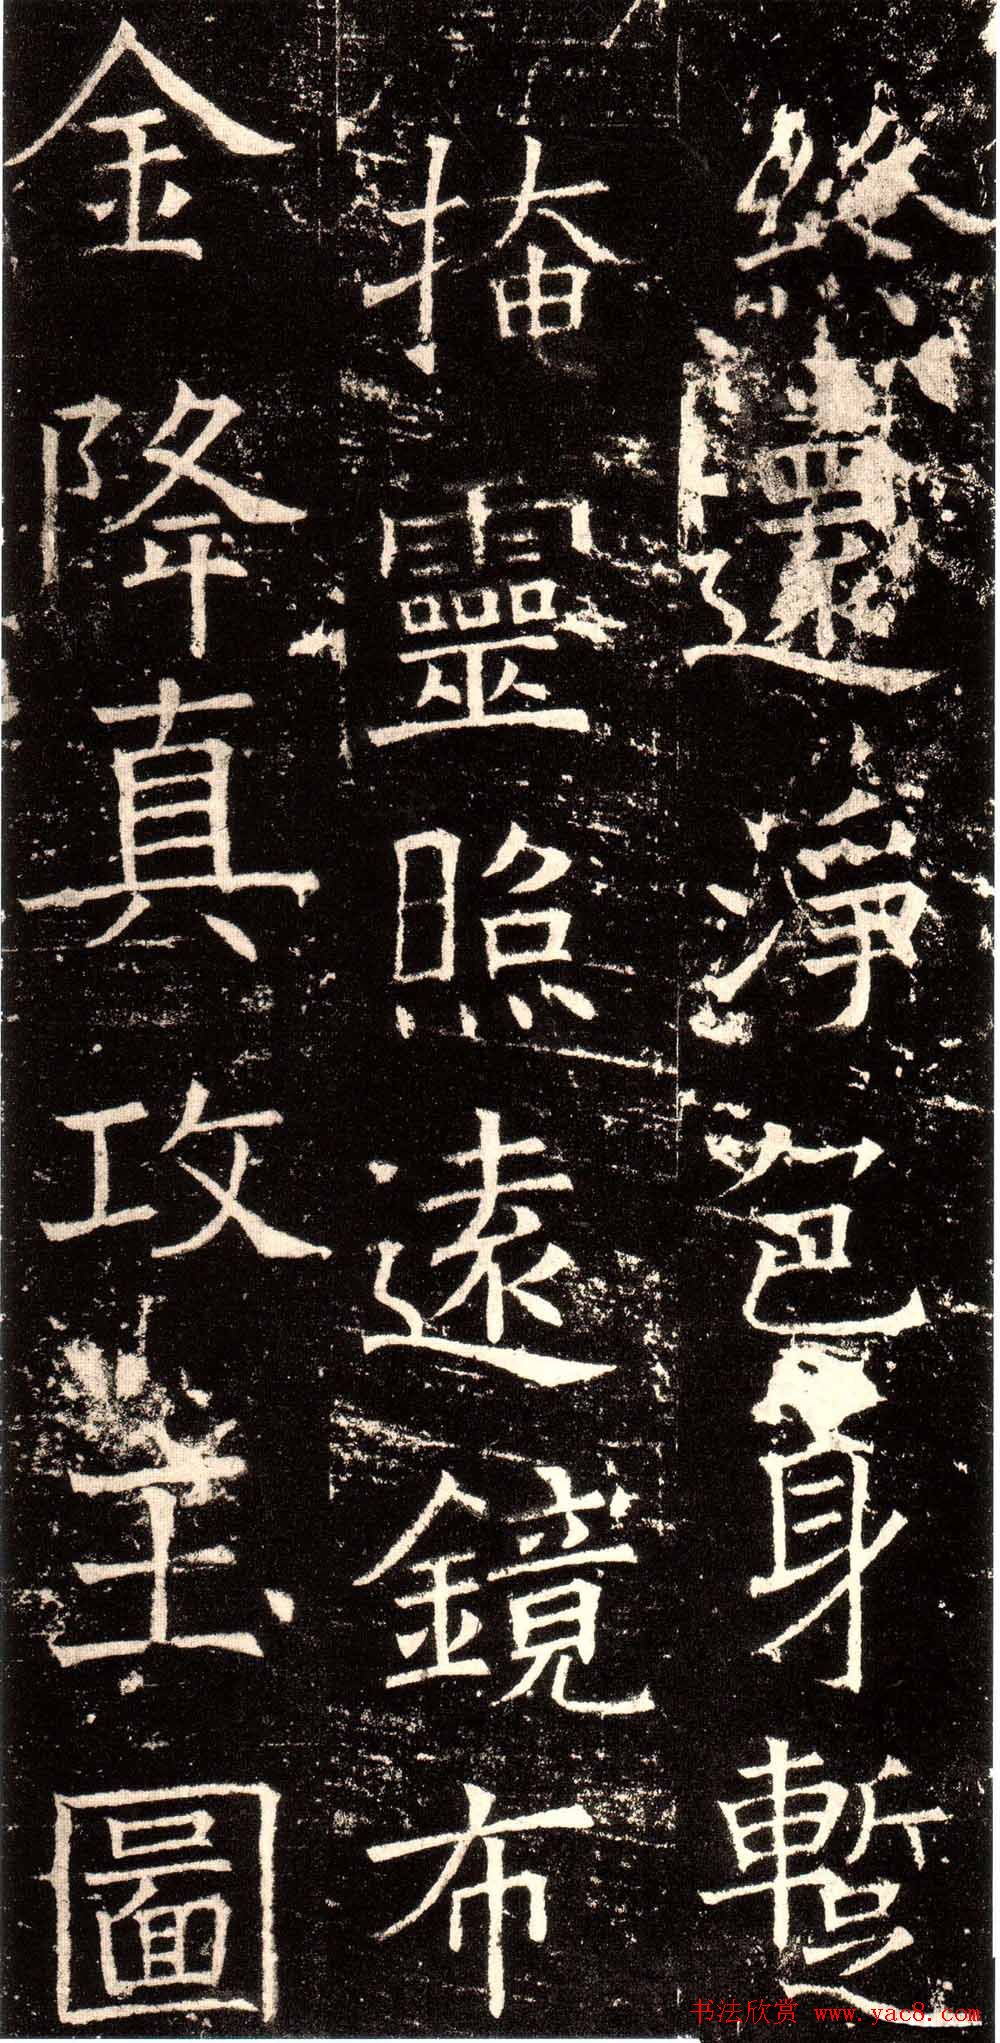 終還淨色身暫
掩靈照遠鏡布
金降真攻玉圖
书法欣赏 www.yac8.com